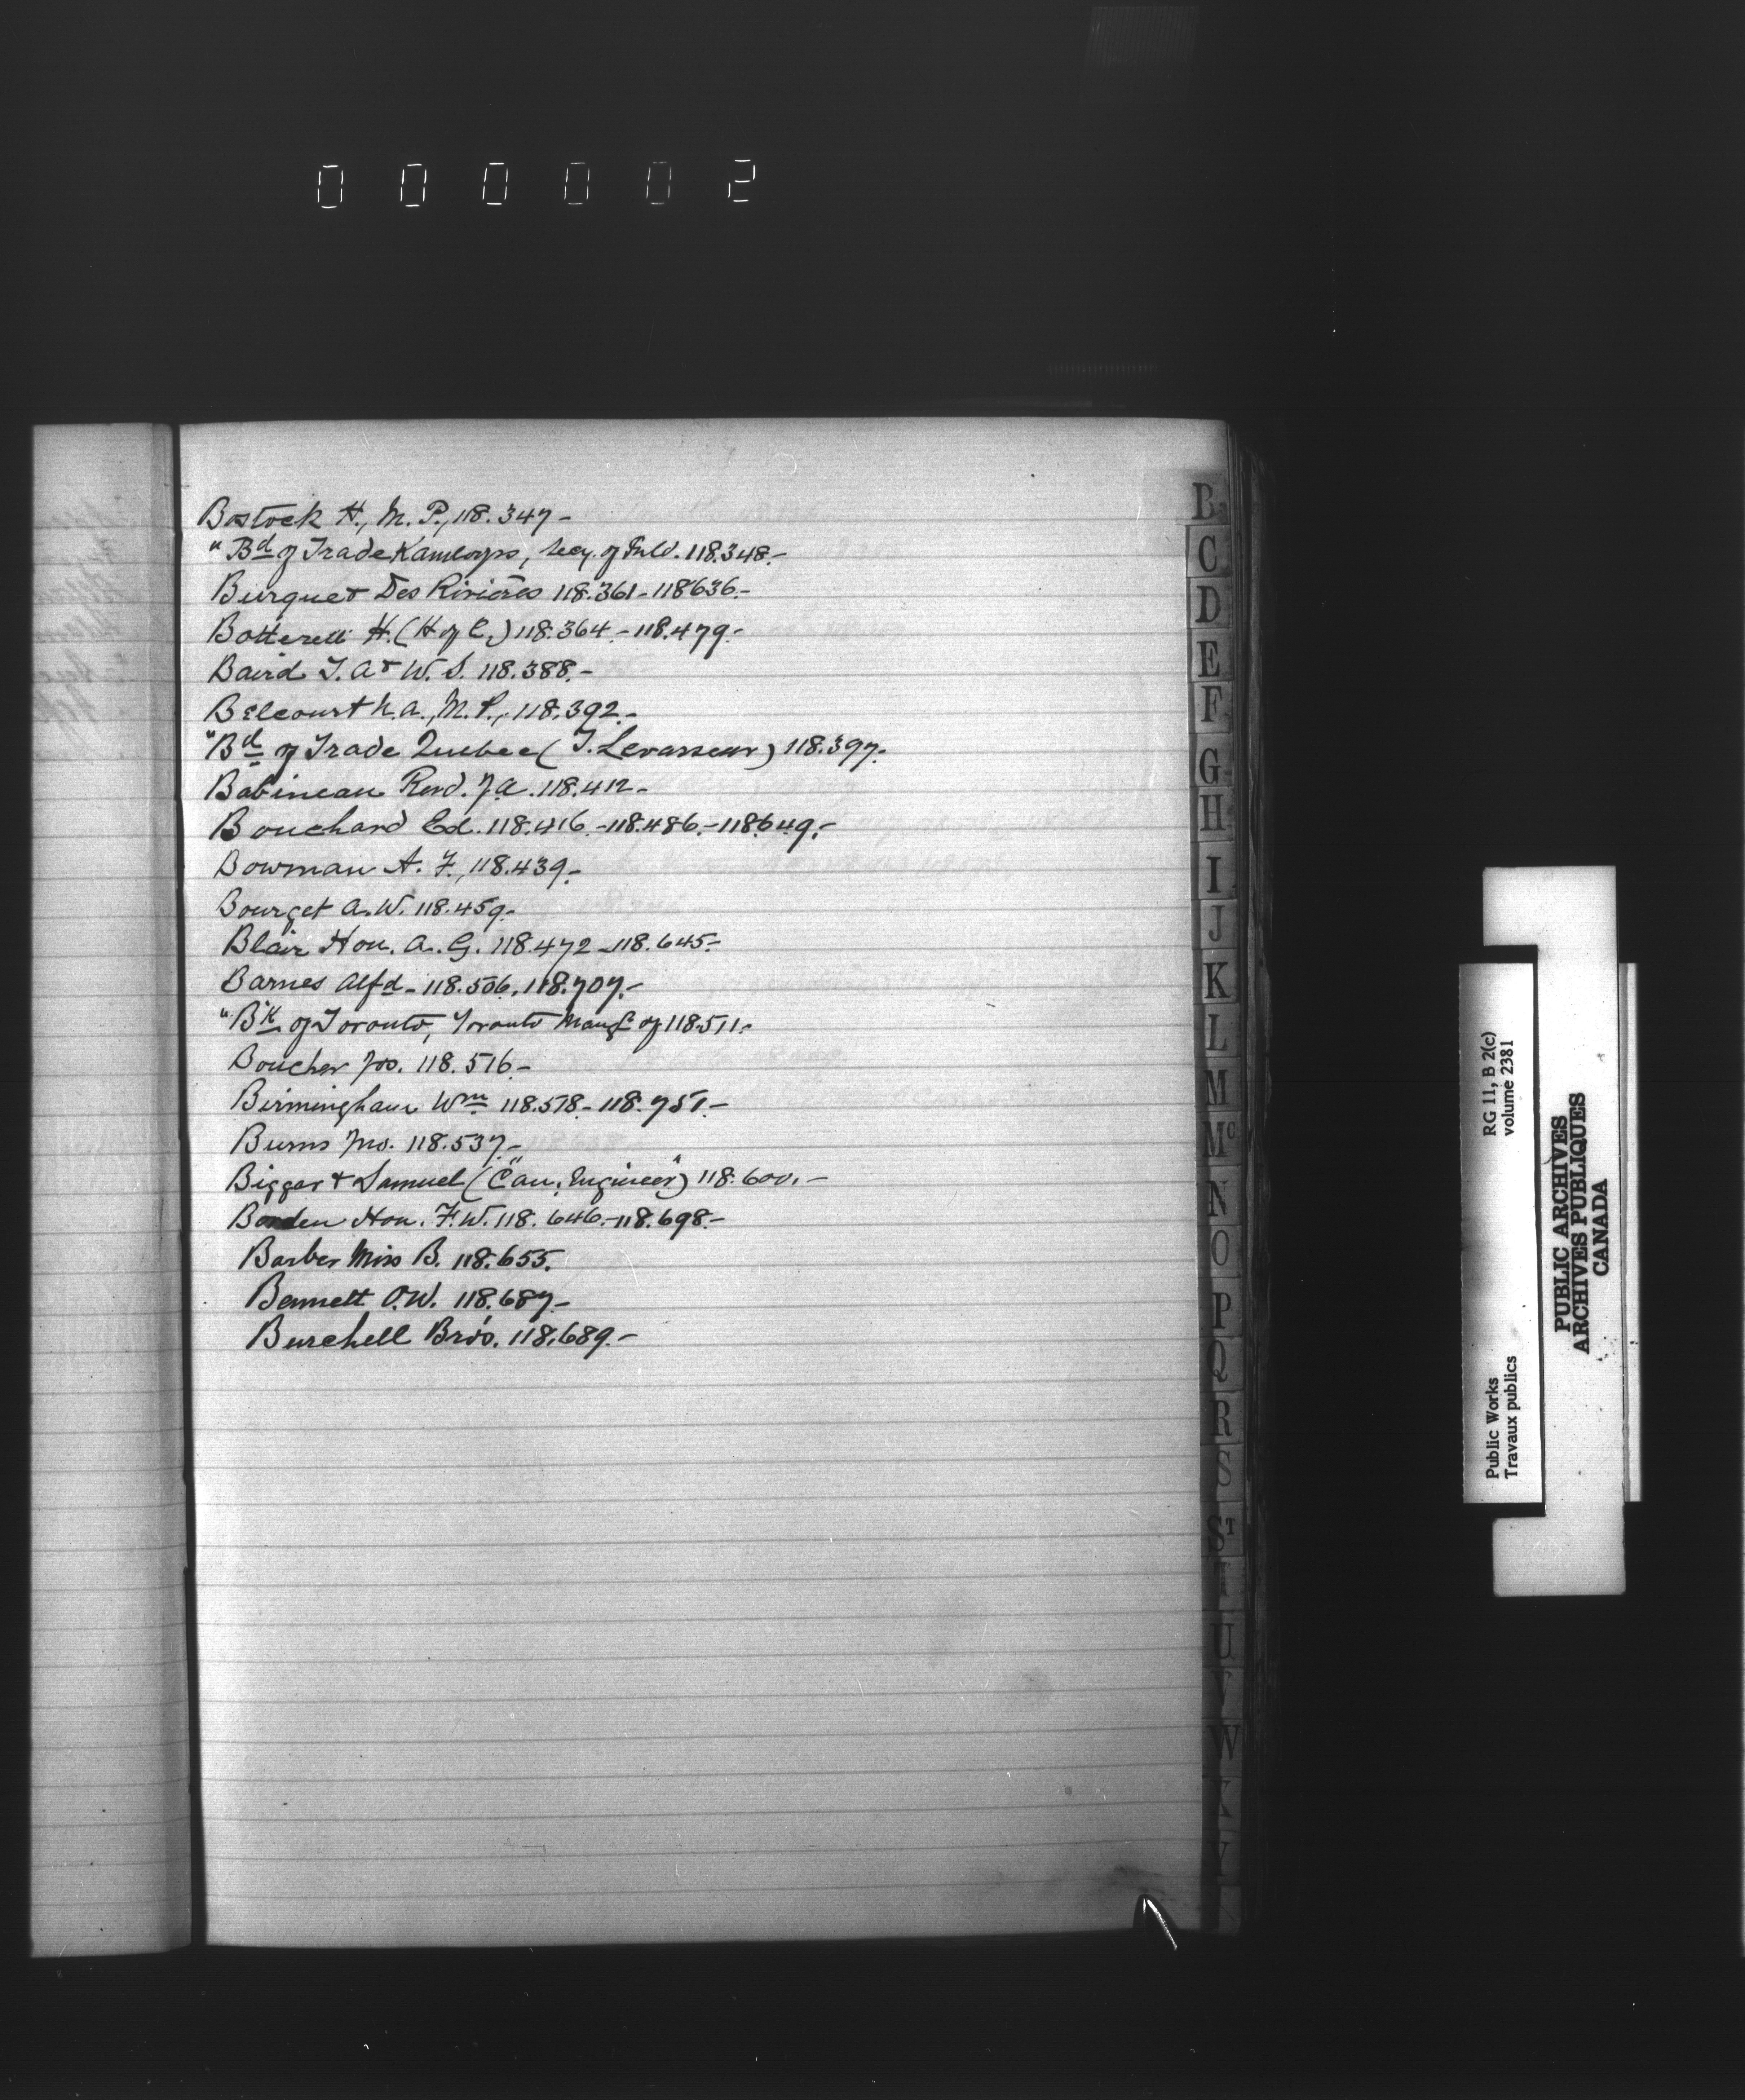 000002
Bostock H., M. P., 118.347-
"Bd of Trade Kamloops, Secy. of Inld. 118.348.-
Burque & Des Rivières 118.361-118636.-
Botterell H. (H of C.) 118.364.-118.479.-
Baird T. A & W. S. 118.388.-
Belcourt N. A., M. P., 118.392.-
"Bd of Trade Quebec (T. Levasseur) 118.397.-
Babineau Revd. J. A. 118.412-
Bouchard Ed. 118.416.-118.486.-118649.-
Bowman A. F., 118.439.-
Bourget A. W. 118.459.-
Blair Hon. A. G. 118.472-118.645.-
Barnes Alfd- 118.506, 118.707.-
"Bk of Toronto, Toronto Mangr of 118.511.-
Boucher Jos. 118.516.-
Birmingham Wm 118.518-118.751.-
Burns Jno. 118.537.-
Biggar & Samuel ("Can. Engineer") 118.600.-
Borden Hon. F. W. 118.646.-118.698.-
Barber Miss B. 118.655.
Bennett O. W. 118.687.-
Burchell Bros. 118.689.-
B
C
D
E
F
G
H
I
J
K
L
M
Mc
N
O
P
Q
R
S
ST
T
U
V
W
X
Y
Public Works
Travaux publics
RG 11, B 2(c)
volume 2381
PUBLIC ARCHIVES
ARCHIVES PUBLIQUES
CANADA